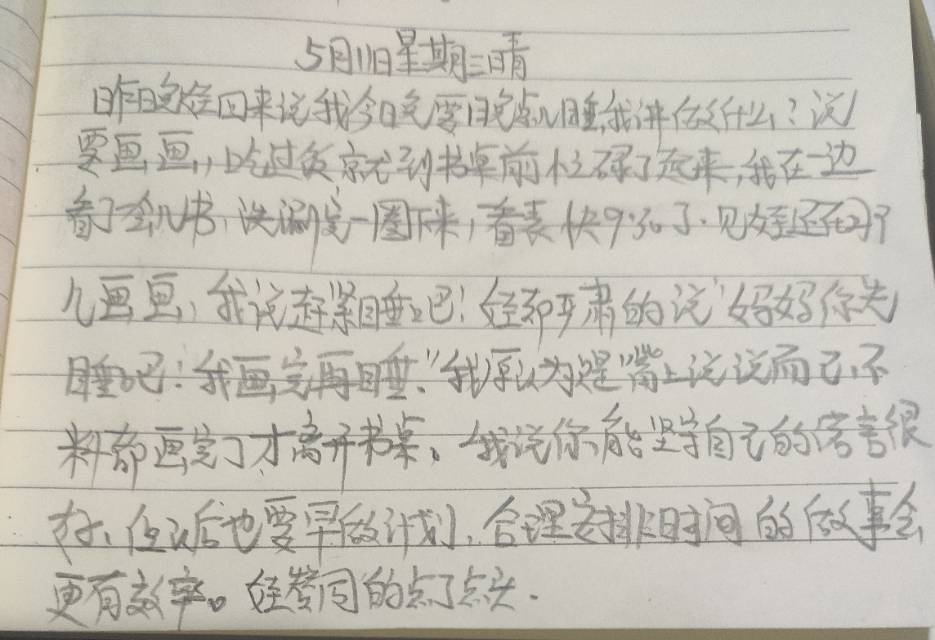 5月11日星期三晴
昨晚侄回来说我今晚要晚点儿睡,我讲做什么?说
要画画,吃过饭就到书桌前忙碌了起来,我在一边
看了会儿书,洗漱完一圈下来,看表快9:30了.见侄还在
儿画画,我说赶紧睡吧!侄却严肃的说"妈妈你先
睡吧!我画完再睡."我原以为是嘴上说说而已,不
料却画完了才离开书桌。我说你能坚守自己的诺言很
好,但以后也要早做计划,合理安排时间的做事会
更有效率。侄赞同的点了点头.